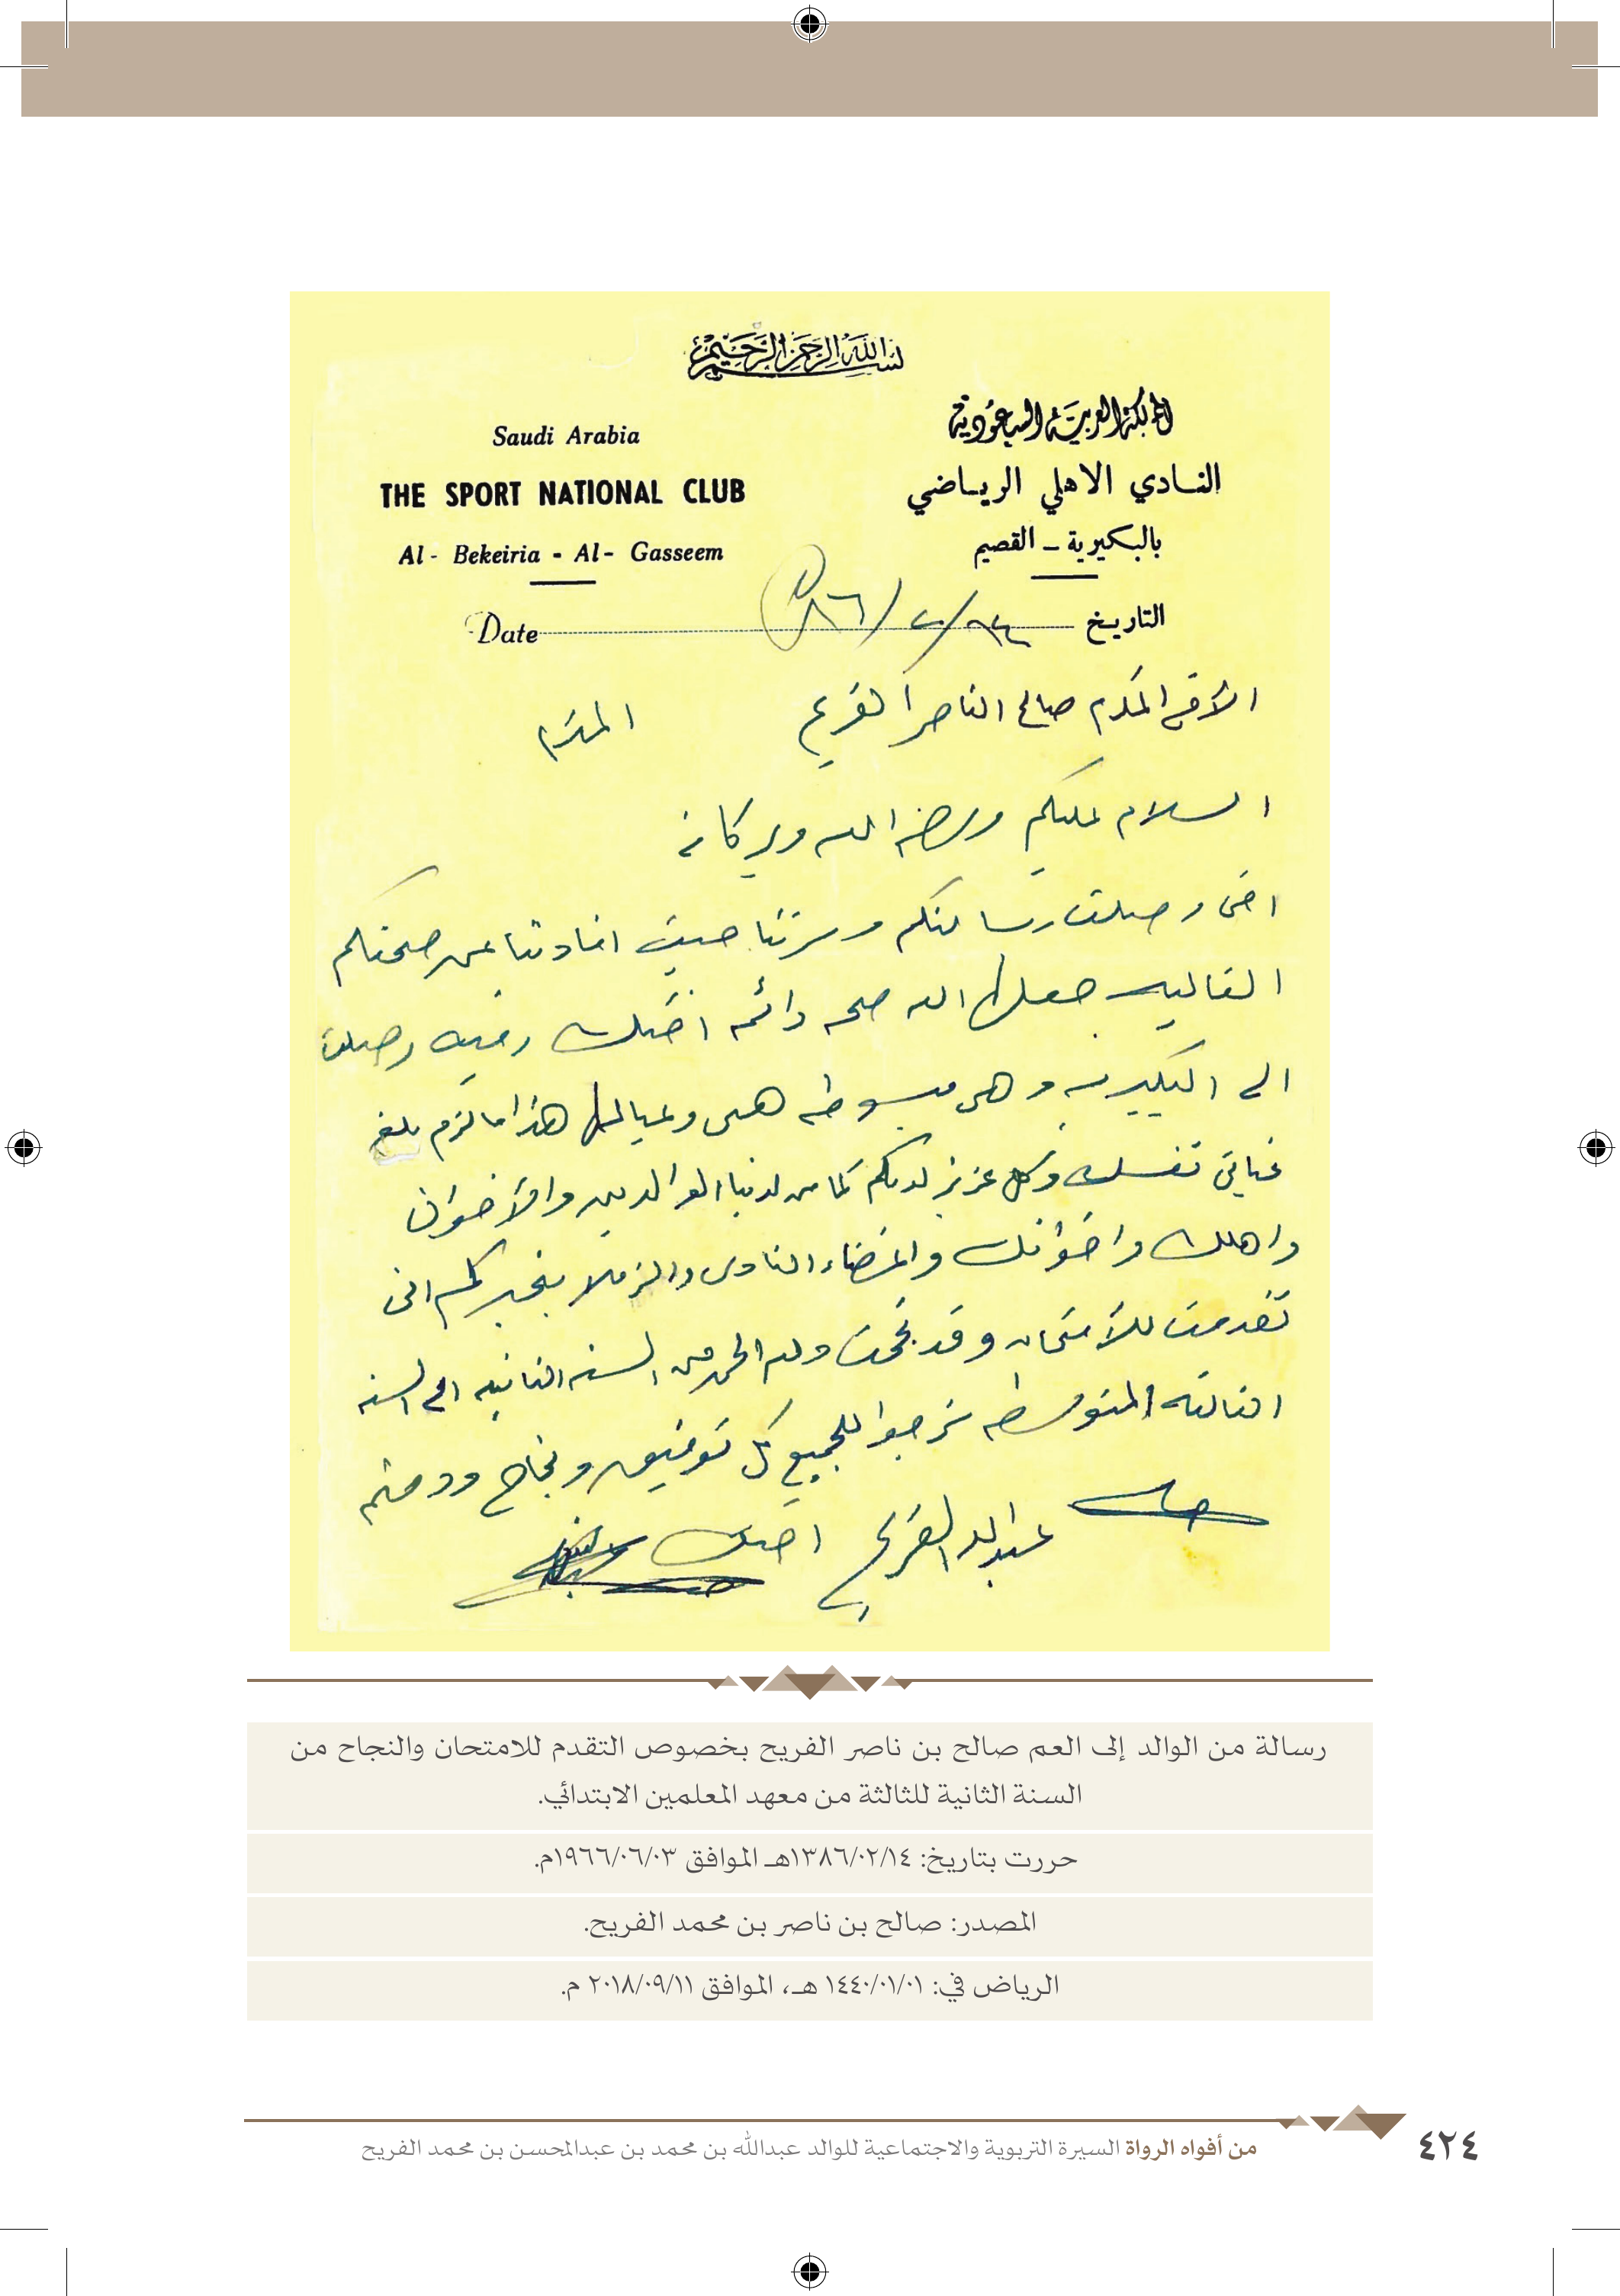 بسم الله الرحمن الرحيم
المملكة العربية السعودية
Saudi Arabia
النادي الاهلي الرياضي
THE SPORT NATIONAL CLUB
بالبكيرية - القصيم
Al - Bekeiria - Al - Gasseem
التاريخ ١٤/٢/٨٦ Date
الأخ المكرم صالح الناصر الفريح المحترم
السلام عليكم ورحمة الله وبركاته
اخى وصلت رسالتكم وسرتنا حيث افادتنا عن صحتكم
الغاليه جعلها الله صحه دائمه اختك رقيه وصلت
الى البكيريه وهى مبسوطه هى وعيالها هذا ما لزم بلغ
تفسك وكل عزيز لديكم كما من لدينا الوالدين والأخوان
واهلك واخوانك واعضاء النادى والزملا بخير كم انى
تقدمت للأمتحان وقد نجحت ولله الحمد من السنه الثانيه الى السنه
الثالثه المتوسطه نرجوا للجميع كل توفيق ونجاح ودمتم
اخيك عبدالله الفريح
رسالة من الوالد إلى العم صالح بن ناصر الفريح بخصوص التقدم للامتحان والنجاح من
السنة الثانية للثالثة من معهد المعلمين الابتدائي.
حررت بتاريخ: ١٣٨٦/٠٢/١٤هـ الموافق ١٩٦٦/٠٦/٠٣م.
المصدر: صالح بن ناصر بن محمد الفريح.
الرياض في: ١٤٤٠/٠١/٠١ هـ، الموافق ٢٠١٨/٠٩/١١ م.
من أفواه الرواة السيرة التربوية والاجتماعية للوالد عبدالله بن محمد بن عبدالمحسن بن محمد الفريح
٤٢٤